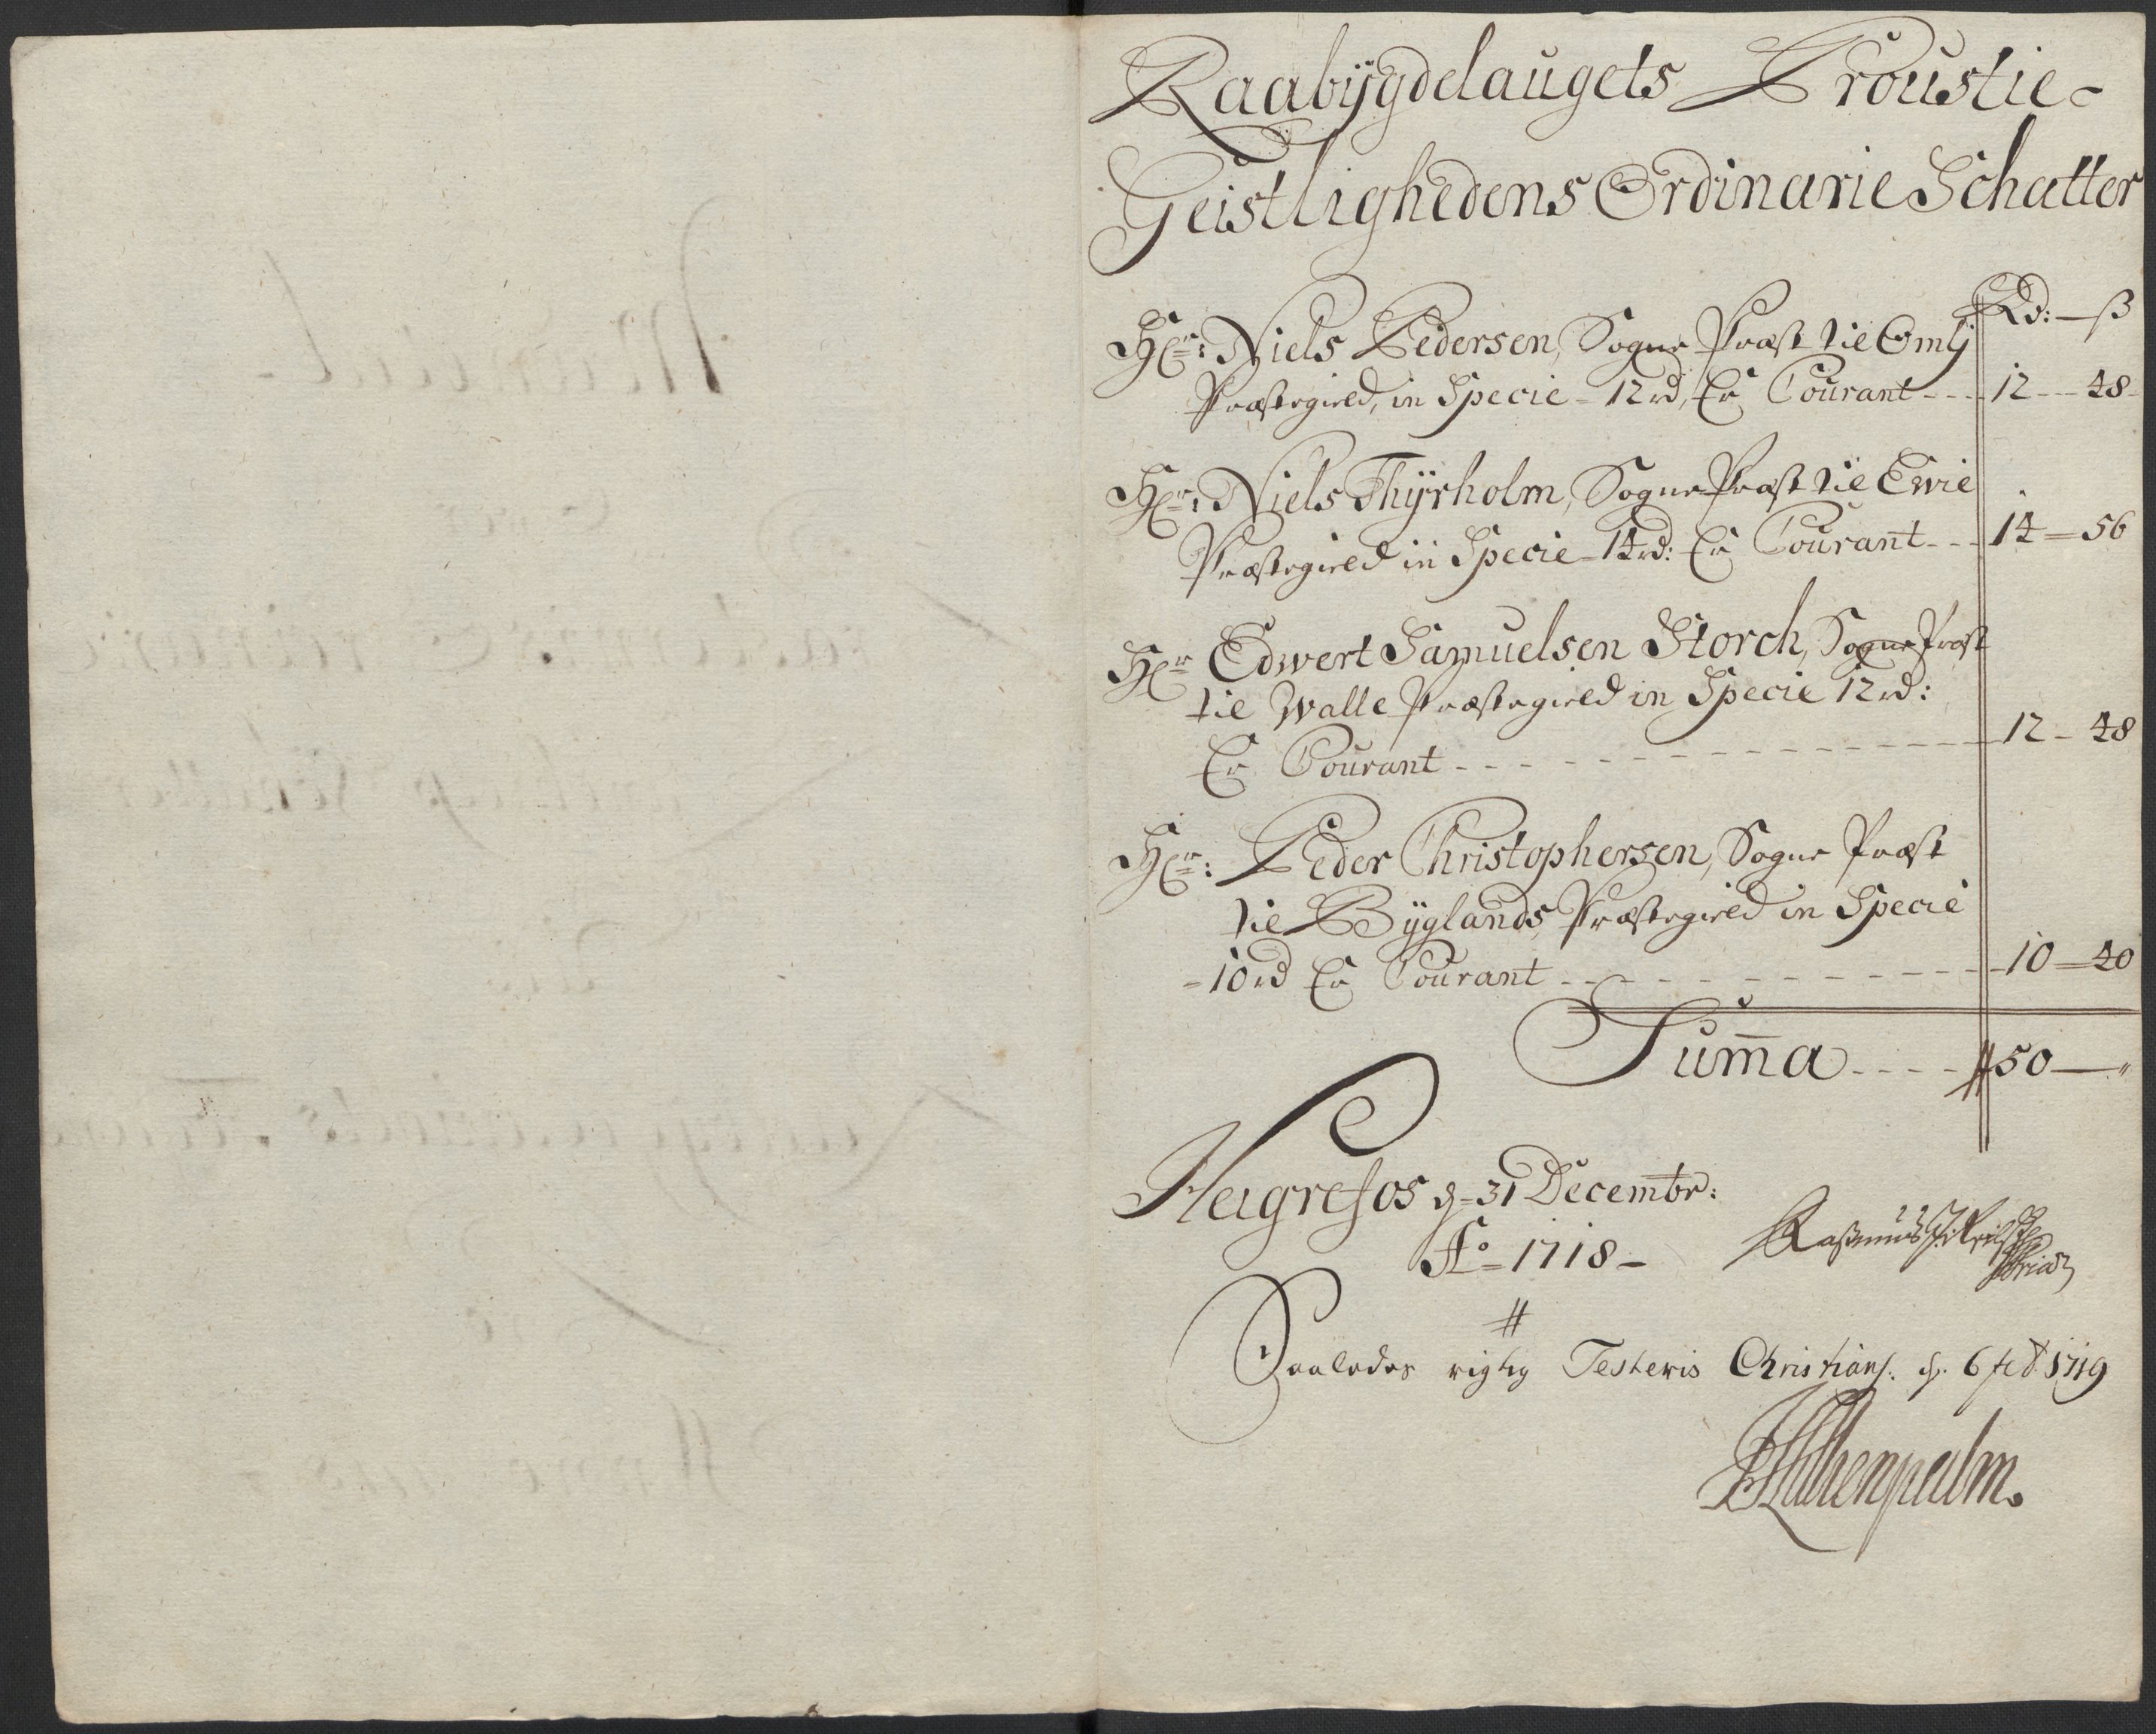 Raabÿgdelaugets Proustie-
Geistlighedens Ordinarie Schatter
Rd: — ß
Hr: Niels Pedersen, Sogne Præst til Omlj
Præstegield, in Specie - 12 rd, Er Courant - - - 12 - - - 48 -
Hr: Niels Thÿrholm, Sogne Præst til Ewie
Præstegield in Specie - 14 rd: Er Courant - - - 14 = 56
Hr Edwert Samuelsen Storch, Sogne Præst
til Walle Præstegield in Specie 12 rd:
Er Courant - - - - - - - - - - - 12 - 48
Hr: Peder Christophersen, Sogne Præst
til Bÿglands Præstegield in Specie
= 10 rd Er Courant - - - - - - - - - - 10 = 40
Sum̄a - - - - 50 — "
d = 31 Decembr:
Ao = 1718 -
Rasmus
Saaledes rigtig Testeris Christians. d. 6 feb 1719